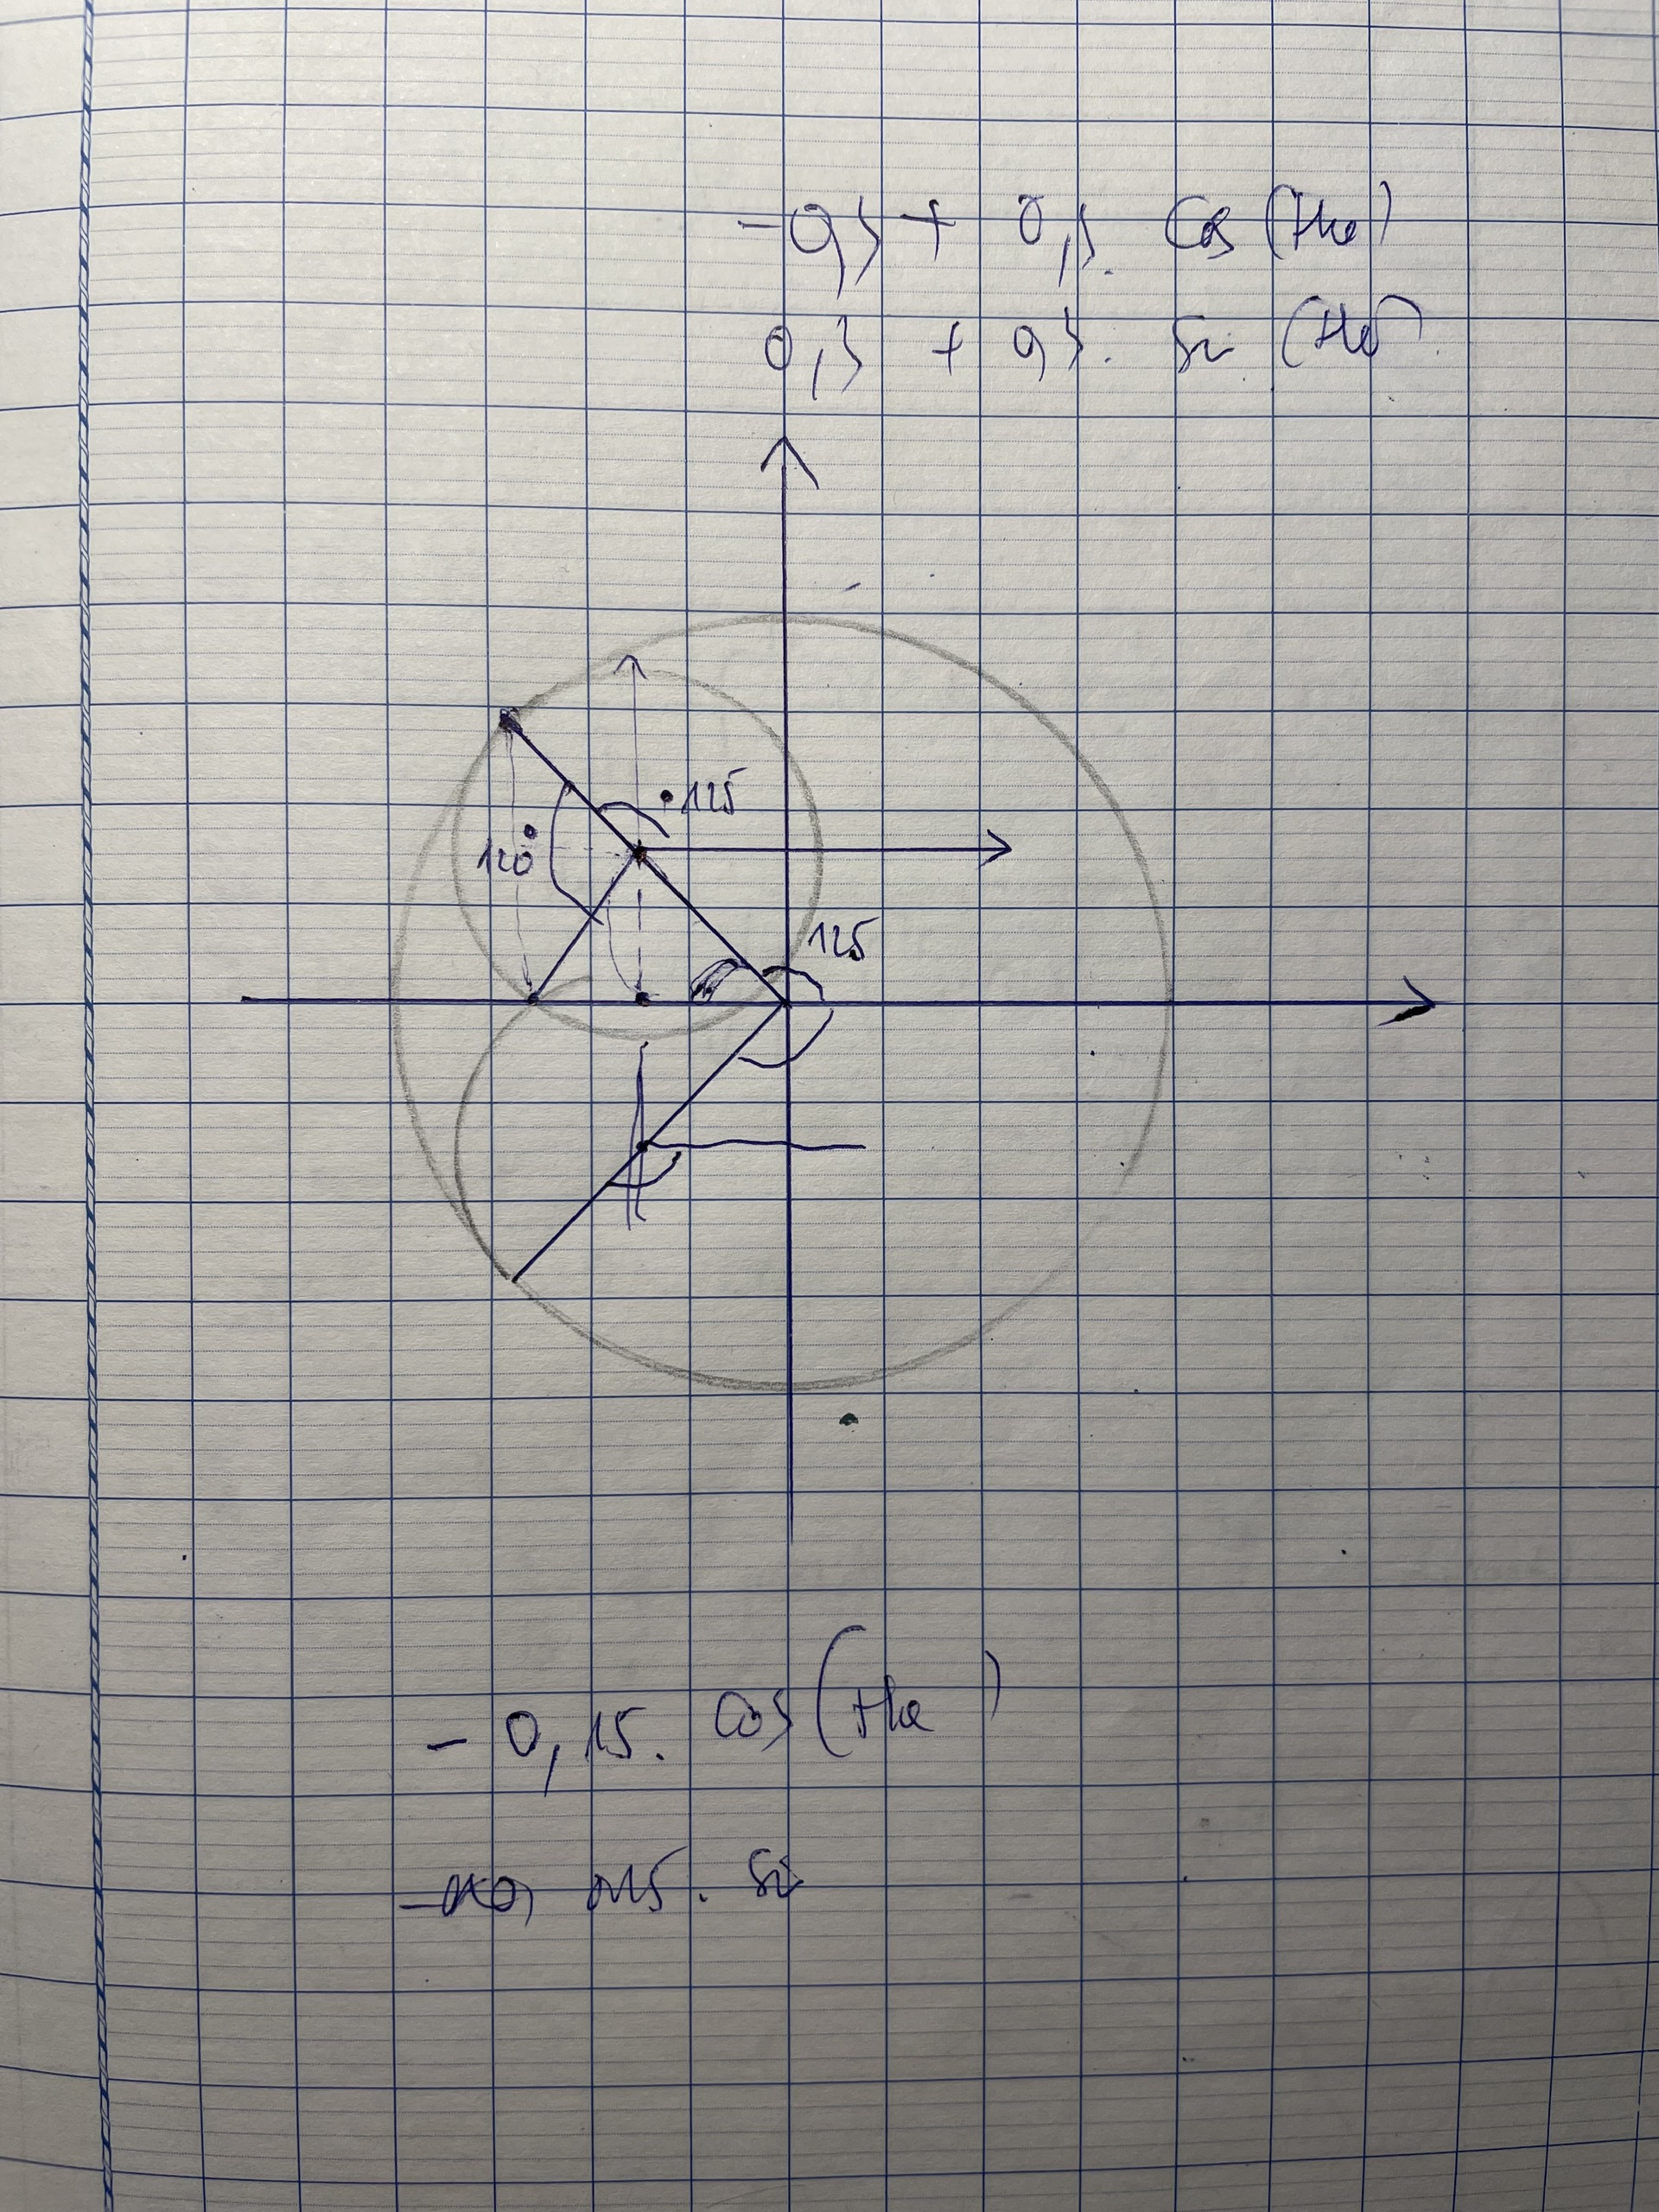 + 0, . Cos (the)
0,3 + 0,3. Sin (the)
• 125
120°
125
- 0,15. Cos (the )
0,15. Sin